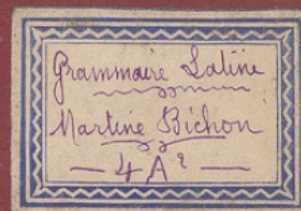 Grammaire Latine
Martine Bichon
— 4 A² —